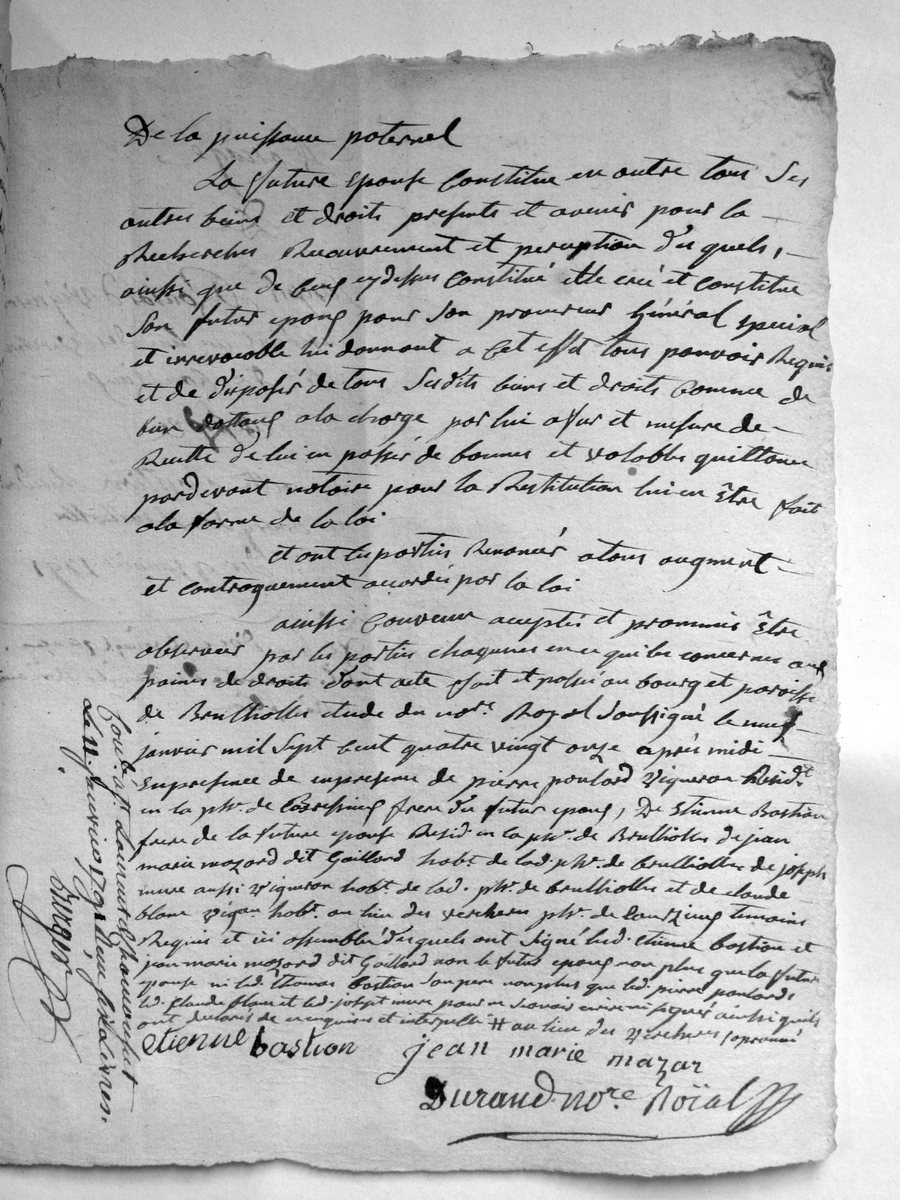 De la puissance paternel
La future epouse Constitue en outre tous Ses
autres biens et droits presents et avenir pour la
Recherches Recouvrement et perception desquels,
ainsi que de ceux cydessus constitué elle creé et constitue
Son futur epoux pour Son procureur Général special
et irrevocable lui donnant a Cet effet tous pouvoir Requis
et de disposér de tous Sesdits biens et droits Comme de
bien dottaux ala charge par lui afur et mesure de
Recette de lui en passér de bonnes et valables quittance
pardevant notaire pour la Restitution lui en être fait
ala forme de la loi
et ont les parties Renoncér atous augment
et contraquement accordés par la loi
ainsi Convenu acceptés et prommis être
observér par les parties chaqunes en ce qui les concernes aux
paines de droits dont acte fait et passé au bourg et paroisse
de Brulliolles etude du nore. Royal Soussigné le neuf
janvier mil Sept Cent quatre vingt onze après midi
En presence de en presence de pierre poulard Vigneron Residt
en la psse. de frere du futur epoux, De Etienne Bastion
frere de la future epouse Resid. en la psse. de Brulliolles de jean
marie mazard dit Gaillard habt. de lad. psse. de brulliolles de joseph
mure aussi Vigneron habt. de lad. psse. de brulliolles et de claude
blanc habt. au lieu des verchere psse. de temoins
Requis et ici assemblé desquels ont Signé led. etienne bastion et
jean marie mazard dit Gaillard non le futur epoux non plus que la future
epouse ni led. thomas bastion Son pere non plus que led. pierre poulard
led. Claude blanc et led. joseph mure pour ne Scavoir ecrire ni signer ainsi quils
ont declarés de ce enquises et interpellé # au lieu des Verchere
etienne bastion jean marie mazar
Durand nore. Roïal
Le 11. janvier 1791
livres.